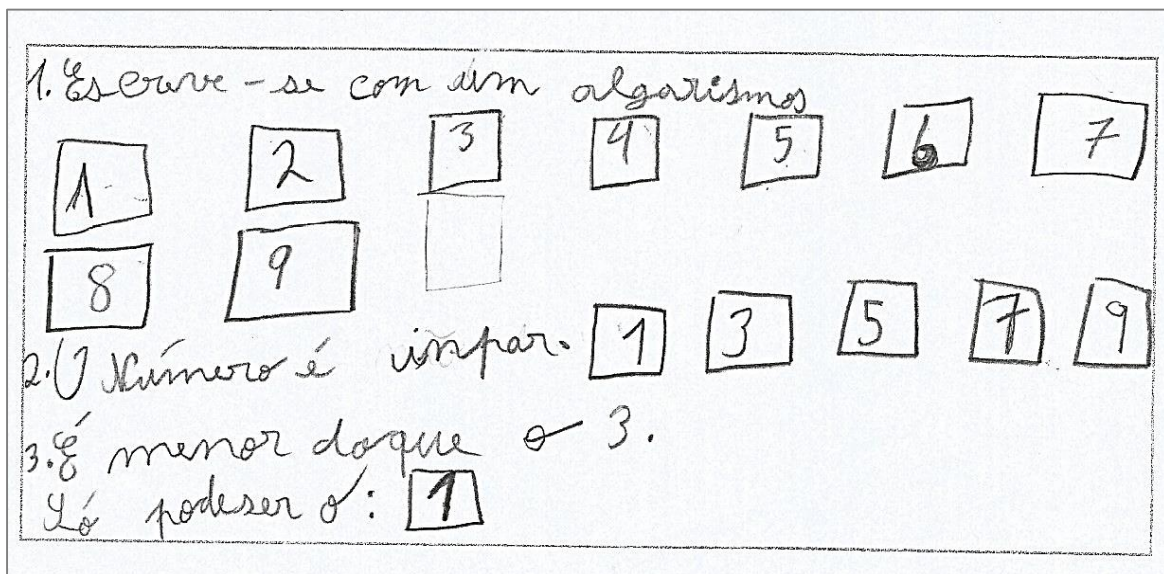 1. Escreve-se com um algarismos
1 2 3 4 5 6 7
8 9
2. O Número é impar. 1 3 5 7 9
3. É menor doque o 3.
Só podeser o: 1